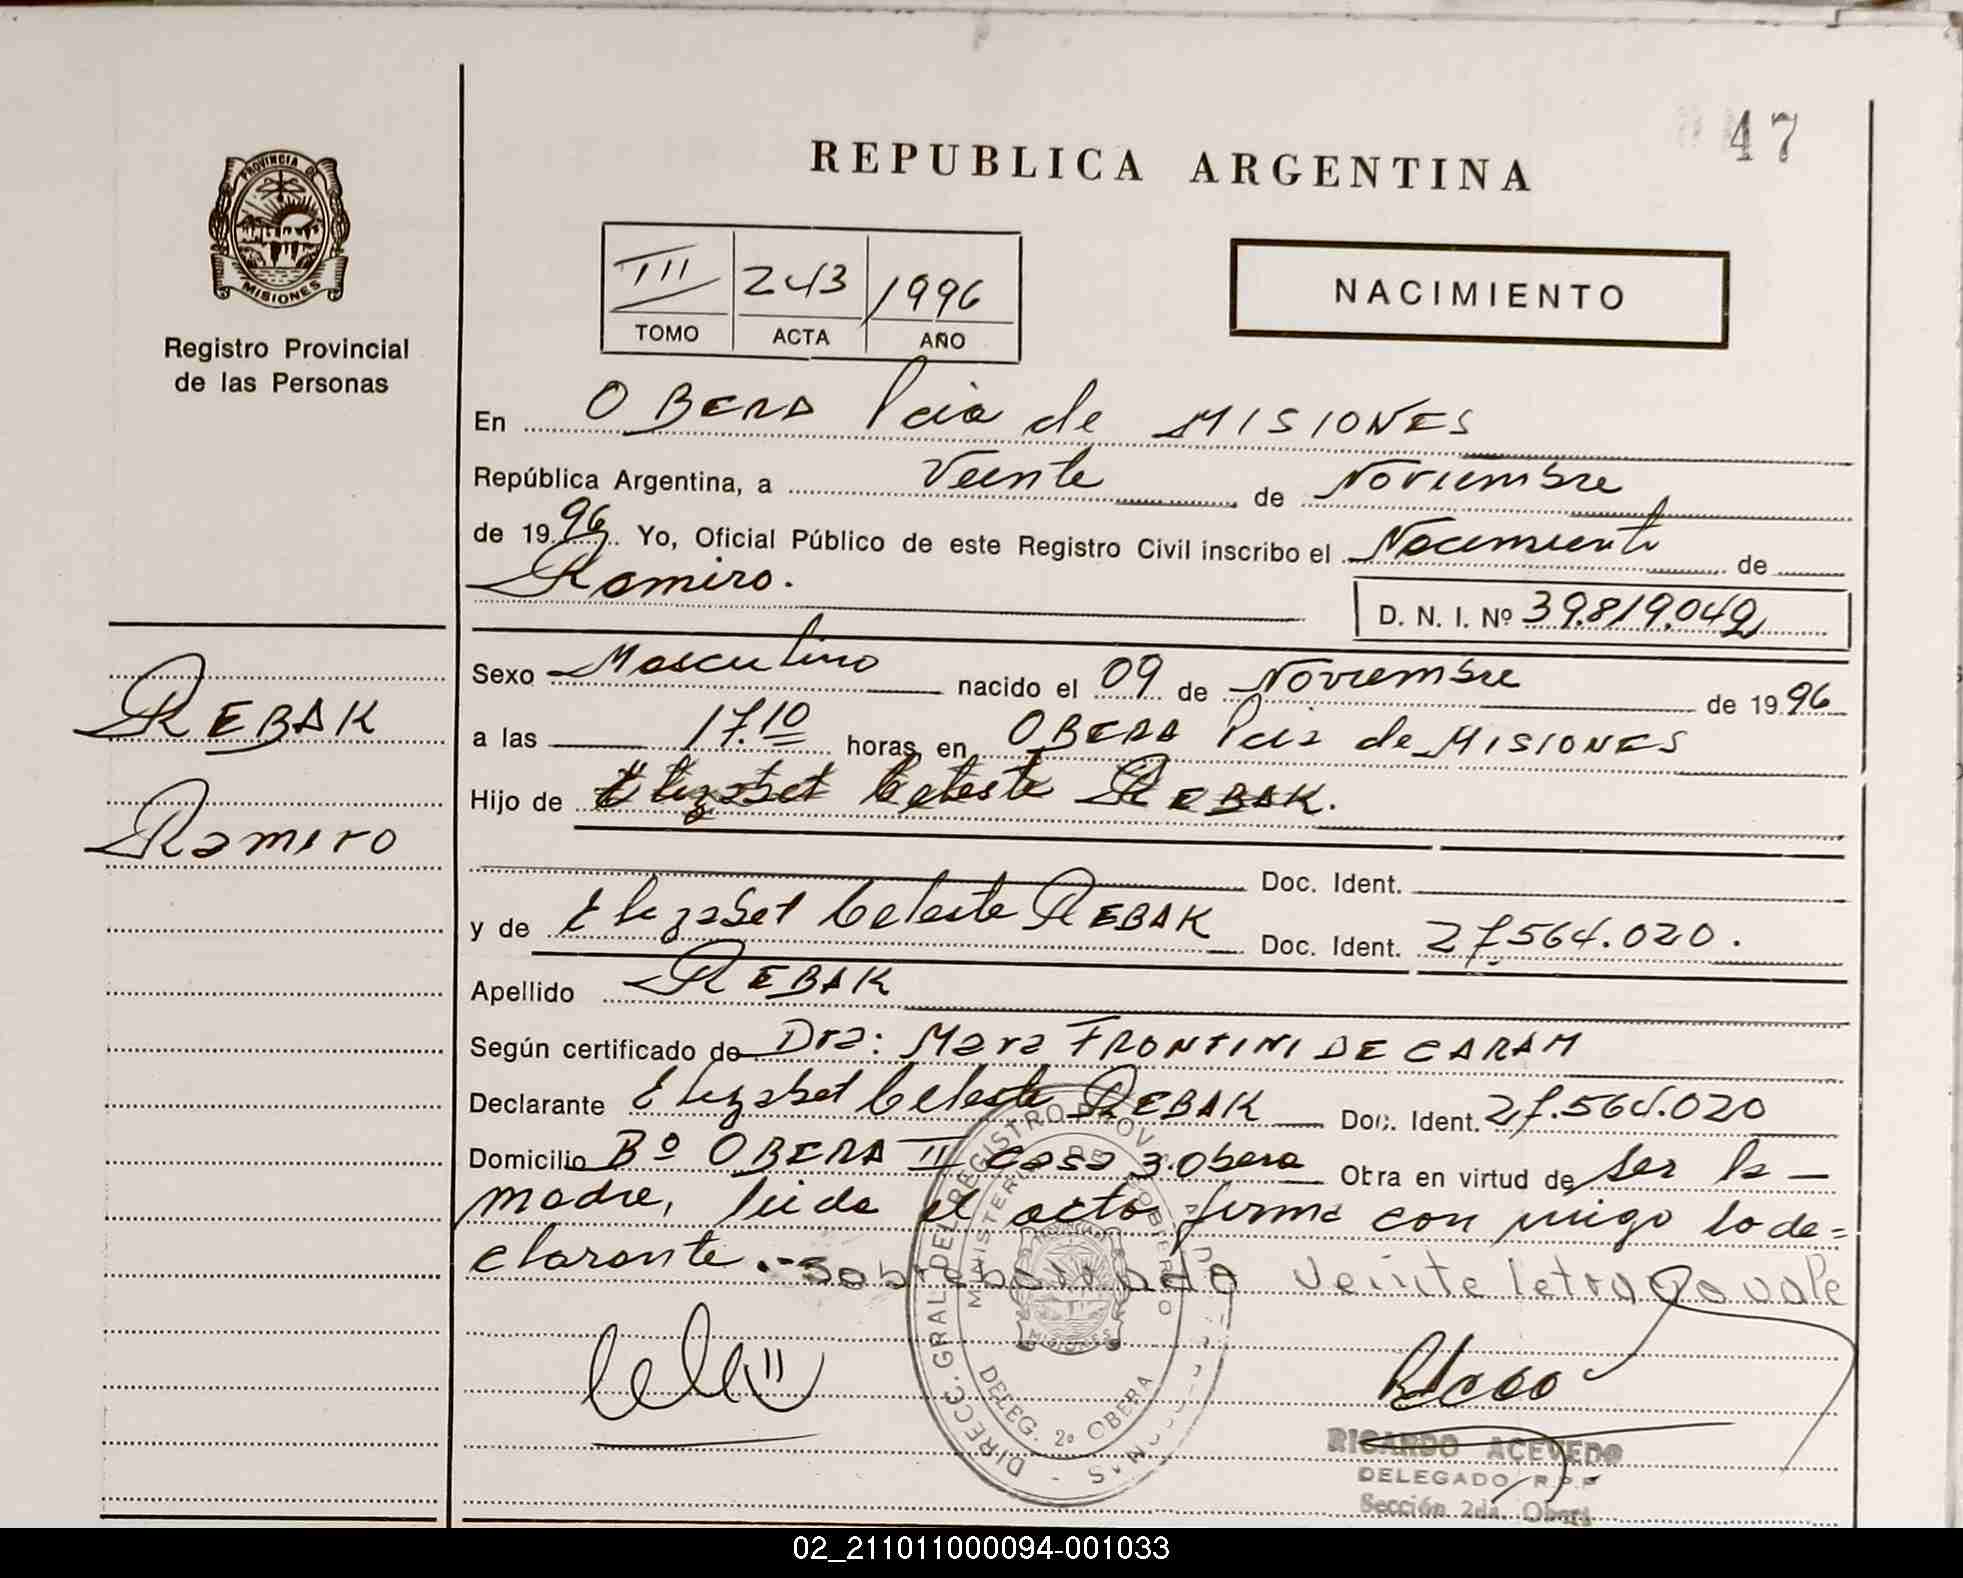 47
REPUBLICA ARGENTINA
PROVINCIA DE
MISIONES
Registro Provincial
de las Personas
III 243 1996
TOMO ACTA AÑO
NACIMIENTO
En OBERA Pcia de MISIONES
República Argentina, a Veinte de Noviembre
de 1996. Yo, Oficial Público de este Registro Civil inscribo el Nacimiento de
Ramiro.
D. N. I. Nº 39.819.049
Sexo Masculino nacido el 09 de Noviembre de 1996
a las 17.10 horas, en OBERA Pcia de MISIONES
REBAK
Ramiro
Hijo de Elizabet Celeste REBAK.
Doc. Ident.
y de Elizabet Celeste REBAK Doc. Ident. 27.564.020.
Apellido REBAK
Según certificado de Dra: Mara FRONTINI DE CARAM
Declarante Elizabet Celeste REBAK Doc. Ident. 27.564.020
Domicilio Bº OBERA II casa 3. Obera Obra en virtud de ser la
madre, leida el acta firma con migo la de=
clarante.- Sobreborrado veinte letras vale
DIRECC. GRAL. DEL REGISTRO PROV.
MINISTERIO DE GOBIERNO
MISIONES
DELEG. 2º OBERA
RICARDO ACEVEDO
DELEGADO R.P.P
Sección 2da. Oberá
02_211011000094-001033